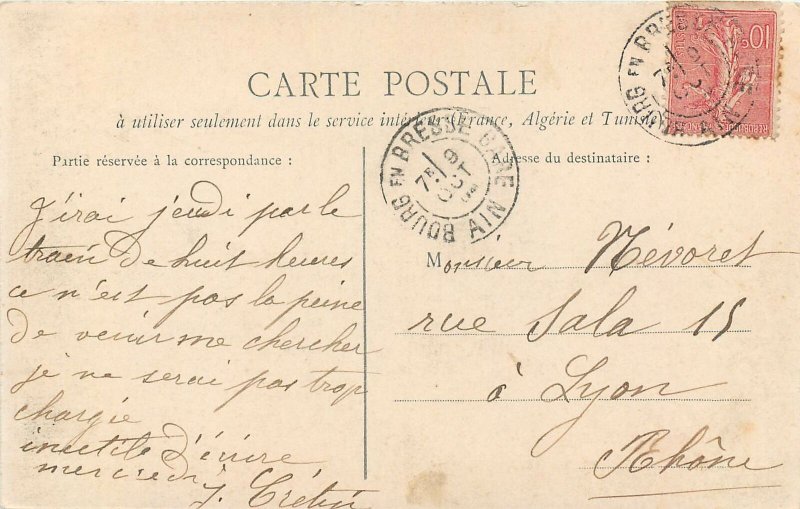 CARTE POSTALE
à utiliser seulement dans le service intérieur (France, Algérie et Tunisie)
Partie réservée à la correspondance :
J'irai jeudi par le
train de huit heures
ce n'est pas la peine
de venir me chercher
je ne serai pas trop
chargée
inutile d'écrire
mercredi
J. Crétin
Adresse du destinataire :
Monsieur Névoret
rue Sala 15
à Lyon
Rhône
BOURG EN BRESSE GARE
7E 9
OCT
AIN
10c
BOURG EN BRESSE
7E
AIN